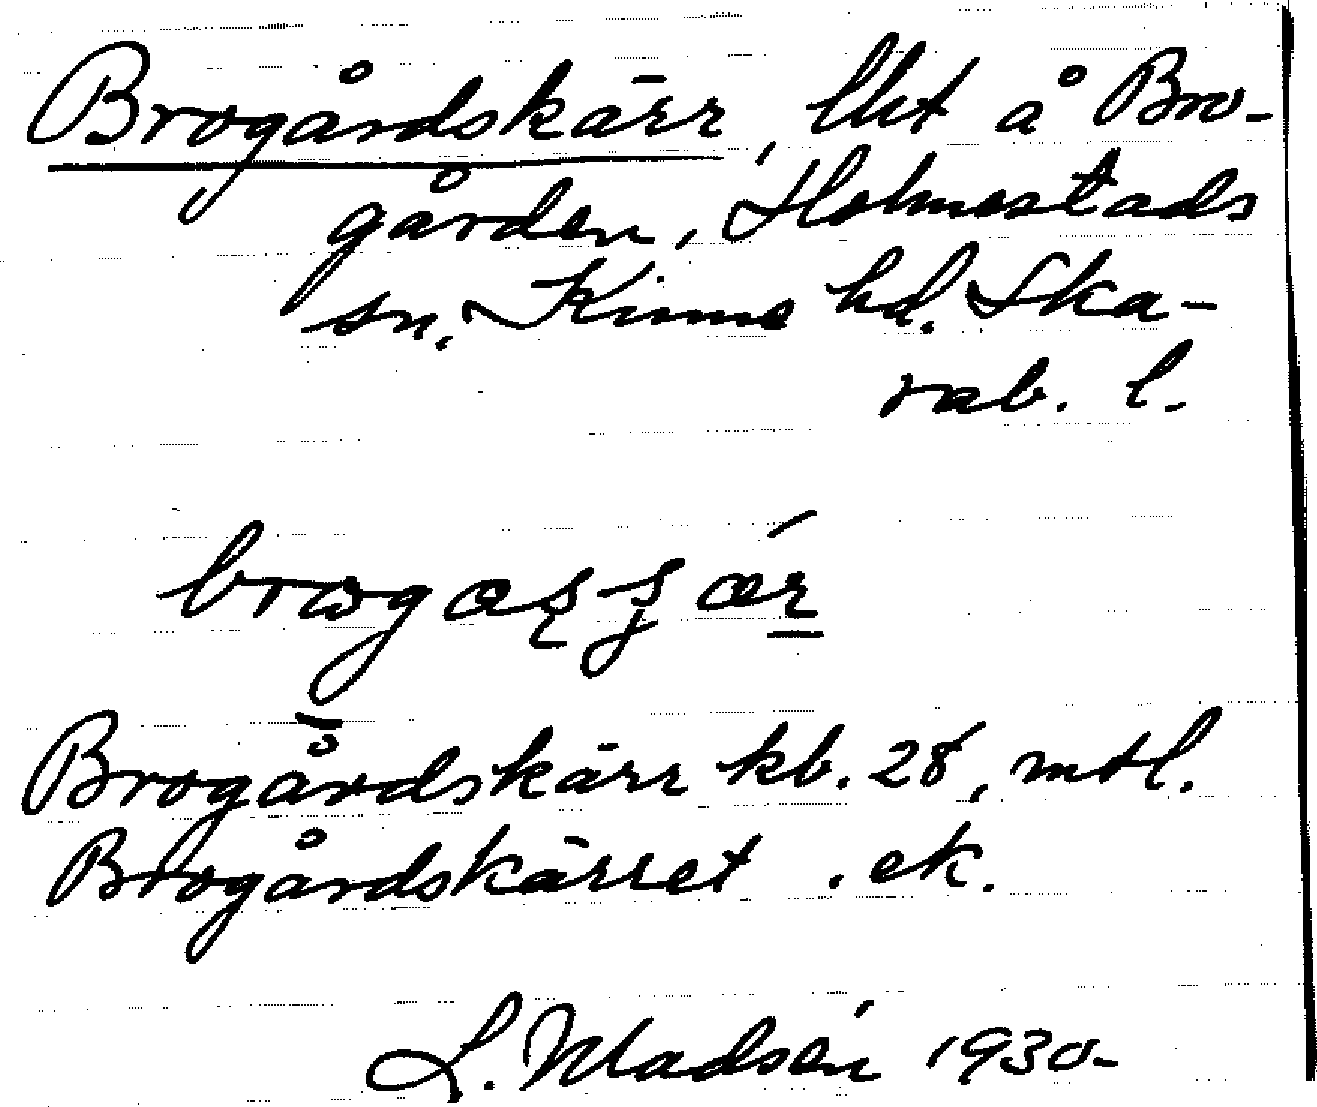 Brogårdskärr, lht å Bro-
gården, Holmestads
sn. Kinne hd. Ska-
rab. l.
Brogårdskärr kb. 28, mtl.
Brogårdskärret . ek.
L. Madsén 1930